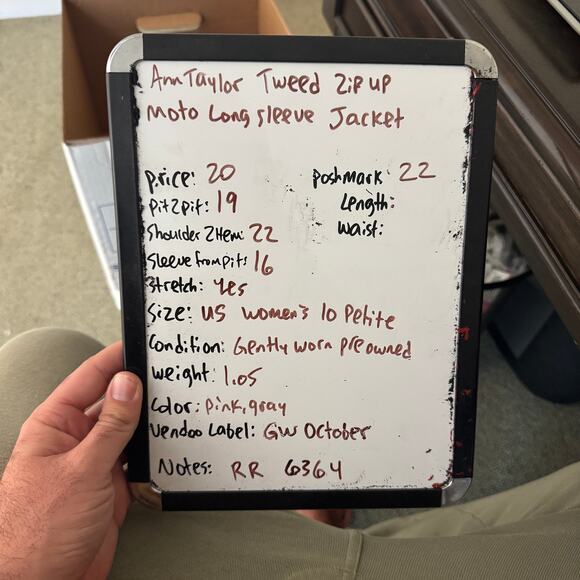 Ann Taylor Tweed Zip up
Moto Long sleeve Jacket
price: 20
poshmark 22
Pit2pit: 19
Length:
Shoulder 2 Hem: 22
waist:
Sleeve from pit: 16
Stretch: yes
Size: US women's 10 Petite
Condition: Gently worn preowned
weight: 1.05
Color: pink, gray
Vendoo Label: GW October
Notes: RR 6364